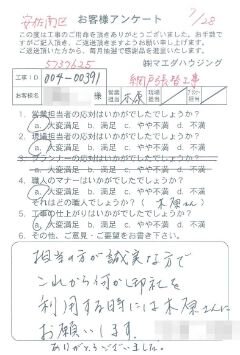 安佐南区
お客様アンケート
7/28
この度は工事のご用命を頂きありがとうございました。お手数で
すがご記入頂き、ご返送頂きますようお願い申し上げます。
ご返送頂いた方から、毎月抽選で感謝品を進呈いたします。
5737625
㈱マエダハウジング
工事ID 004-00391 網戸張替工事
お客様名 様 営業担当 木原 現場担当 プランナー
1. 営業担当者の応対はいかがでしたでしょうか?
a. 大変満足 b. 満足 c. やや不満 d. 不満
2. 現場担当者の応対はいかがでしたでしょうか?
a. 大変満足 b. 満足 c. やや不満 d. 不満
3. プランナーの応対はいかがでしたでしょうか?
a. 大変満足 b. 満足 c. やや不満 d. 不満
4. 職人のマナーはいかがでしたでしょうか?
a. 大変満足 b. 満足 c. やや不満 d. 不満
それはどの職人でしょうか?( 木原さん )
5. 工事の仕上がりはいかがでしたでしょうか?
a. 大変満足 b. 満足 c. やや不満 d. 不満
6. その他、ご意見・ご要望をお書き下さい。
担当の方が誠実な方で
これから何か御社を
利用する時には木原さんに
お願いします。
ありがとうございました。